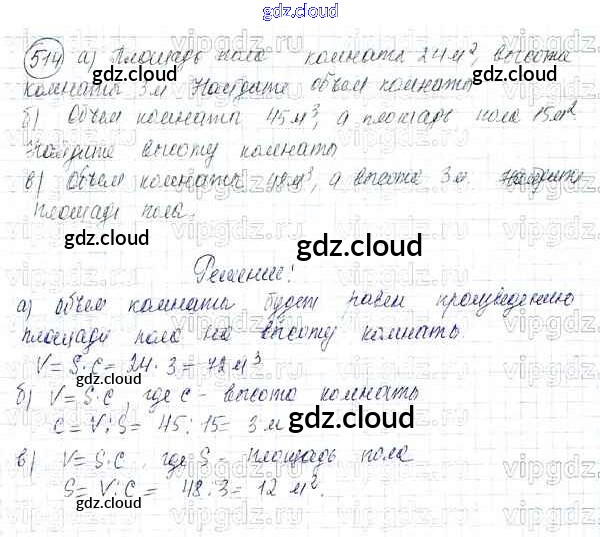 gdz.cloud
514 а) Площадь пола комнаты 24 м², высота
комнаты 3 м. Найдите объем комнаты
б) Объем комнаты 45 м³, а площадь пола 15 м²
Найдите высоту комнаты
в) Объем комнаты 48 м³, а высота 3 м. Найдите
площадь пола.
Решение:
а) объем комнаты будет равен произведению
площади пола на высоту комнаты.
V = S · c = 24 · 3 = 72 м³
б) V = S · c, где с - высота комнаты
c = V : S = 45 : 15 = 3 м
в) V = S · c, где S - площадь пола
S = V : C = 48 : 3 = 12 м².
gdz.cloud